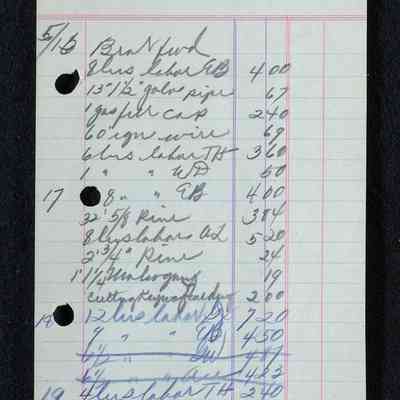 5/16 Branford
8 hrs labor EB 4 00
13" 1 1/2" galv pipe 67
1 gas fill cap 2 40
60" ign wire 69
6 hrs labor TH 3 60
1 " " WD 50
17 8 " " EB 4 00
32' 5/8 Pine 3 84
8 hrs labor AL 5 20
2' 3/4" Pine 24
1' 1 1/4" Mahogany 19
2 00
18 12 hrs labor 7 20
9 " " EB 4 50
6 1/2 " "
6 1/2 " "
19 4 hrs labor TH 2 40